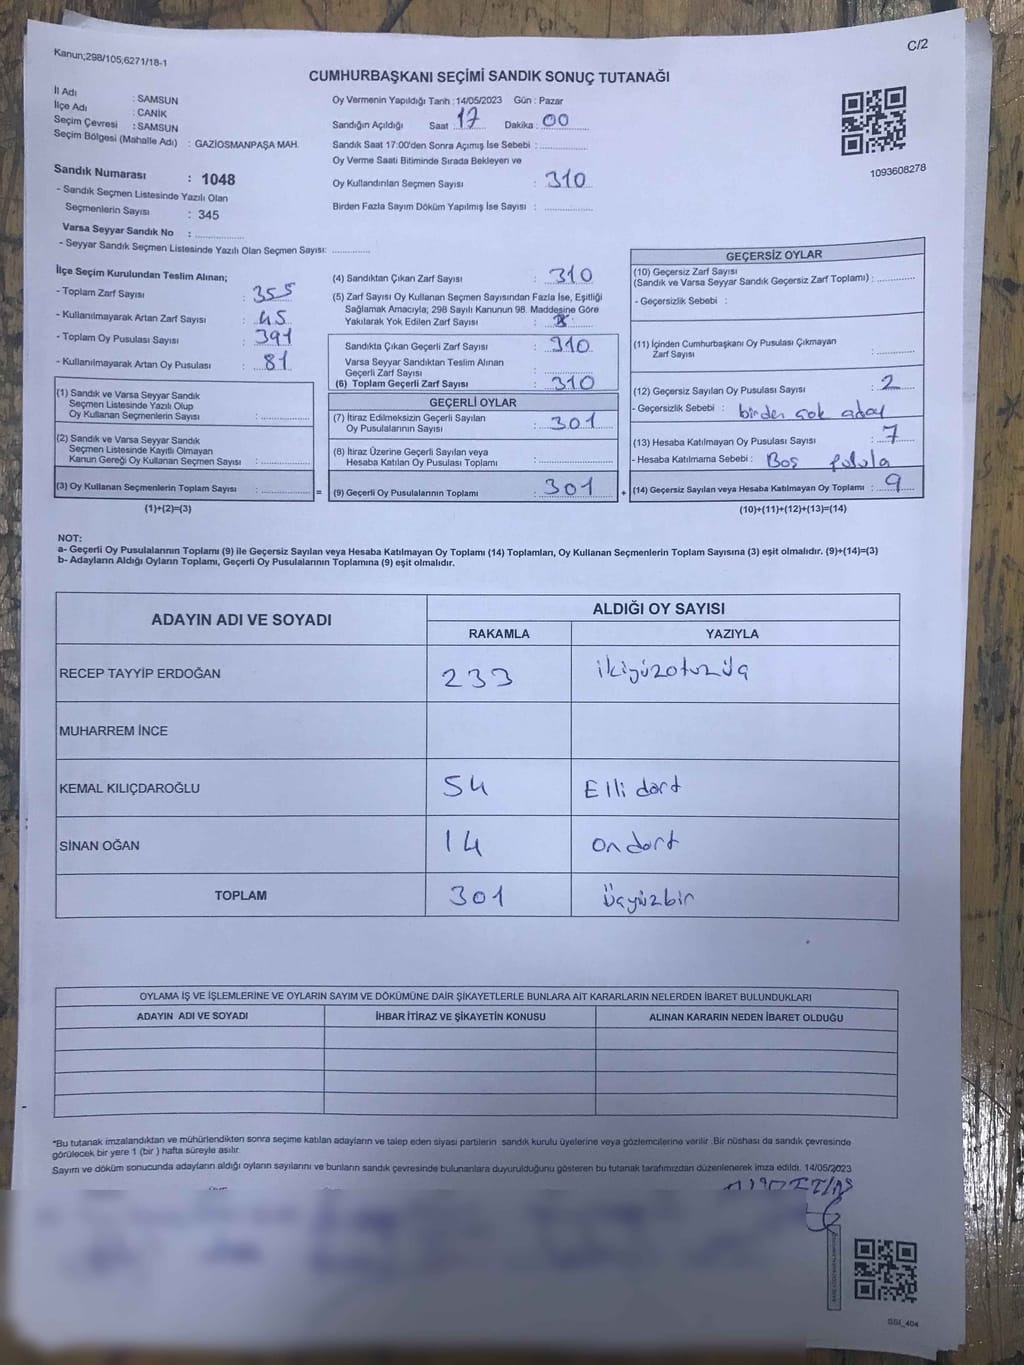 Kanun;298/105;6271/18-1
C/2
CUMHURBAŞKANI SEÇİMİ SANDIK SONUÇ TUTANAĞI
İl Adı : SAMSUN
İlçe Adı : CANİK
Seçim Çevresi : SAMSUN
Seçim Bölgesi (Mahalle Adı) : GAZİOSMANPAŞA MAH.
Sandık Numarası : 1048
- Sandık Seçmen Listesinde Yazılı Olan
Seçmenlerin Sayısı : 345
Varsa Seyyar Sandık No :
- Seyyar Sandık Seçmen Listesinde Yazılı Olan Seçmen Sayısı:
Oy Vermenin Yapıldığı Tarih :14/05/2023 Gün : Pazar
Sandığın Açıldığı Saat 17 Dakika : 00
Sandık Saat 17:00'den Sonra Açımış İse Sebebi :
Oy Verme Saati Bitiminde Sırada Bekleyen ve
Oy Kullandırılan Seçmen Sayısı : 310
Birden Fazla Sayım Döküm Yapılmış İse Sayısı :
1093608278
İlçe Seçim Kurulundan Teslim Alınan;
- Toplam Zarf Sayısı : 355
- Kullanılmayarak Artan Zarf Sayısı : 45
- Toplam Oy Pusulası Sayısı : 391
- Kullanılmayarak Artan Oy Pusulası : 81
(1) Sandık ve Varsa Seyyar Sandık
Seçmen Listesinde Yazılı Olup
Oy Kullanan Seçmenlerin Sayısı :
(2) Sandık ve Varsa Seyyar Sandık
Seçmen Listesinde Kayıtlı Olmayan
Kanun Gereği Oy Kullanan Seçmen Sayısı :
(3) Oy Kullanan Seçmenlerin Toplam Sayısı :
(1)+(2)=(3)
=
(4) Sandıktan Çıkan Zarf Sayısı : 310
(5) Zarf Sayısı Oy Kullanan Seçmen Sayısından Fazla İse, Eşitliği
Sağlamak Amacıyla; 298 Sayılı Kanunun 98. Maddesine Göre
Yakılarak Yok Edilen Zarf Sayısı :
Sandıkta Çıkan Geçerli Zarf Sayısı : 310
Varsa Seyyar Sandıktan Teslim Alınan
Geçerli Zarf Sayısı :
(6) Toplam Geçerli Zarf Sayısı : 310
GEÇERLİ OYLAR
(7) İtiraz Edilmeksizin Geçerli Sayılan
Oy Pusulalarının Sayısı : 301
(8) İtiraz Üzerine Geçerli Sayılan veya
Hesaba Katılan Oy Pusulası Toplamı :
(9) Geçerli Oy Pusulalarının Toplamı : 301
+
GEÇERSİZ OYLAR
(10) Geçersiz Zarf Sayısı
(Sandık ve Varsa Seyyar Sandık Geçersiz Zarf Toplamı) :
- Geçersizlik Sebebi :
(11) İçinden Cumhurbaşkanı Oy Pusulası Çıkmayan
Zarf Sayısı :
(12) Geçersiz Sayılan Oy Pusulası Sayısı : 2
- Geçersizlik Sebebi : birden çok aday
(13) Hesaba Katılmayan Oy Pusulası Sayısı : 7
- Hesaba Katılmama Sebebi : Boş
(14) Geçersiz Sayılan veya Hesaba Katılmayan Oy Toplamı : 9
(10)+(11)+(12)+(13)=(14)
NOT:
a- Geçerli Oy Pusulalarının Toplamı (9) ile Geçersiz Sayılan veya Hesaba Katılmayan Oy Toplamı (14) Toplamları, Oy Kullanan Seçmenlerin Toplam Sayısına (3) eşit olmalıdır. (9)+(14)=(3)
b- Adayların Aldığı Oyların Toplamı, Geçerli Oy Pusulalarının Toplamına (9) eşit olmalıdır.
ADAYIN ADI VE SOYADI ALDIĞI OY SAYISI
RAKAMLA YAZIYLA
RECEP TAYYİP ERDOĞAN 233 ikiyüzotuzüç
MUHARREM İNCE
KEMAL KILIÇDAROĞLU 54 Elli dört
SİNAN OĞAN 14 on dört
TOPLAM 301 üçyüzbir
OYLAMA İŞ VE İŞLEMLERİNE VE OYLARIN SAYIM VE DÖKÜMÜNE DAİR ŞİKAYETLERLE BUNLARA AİT KARARLARIN NELERDEN İBARET BULUNDUKLARI
ADAYIN ADI VE SOYADI İHBAR İTİRAZ VE ŞİKAYETİN KONUSU ALINAN KARARIN NEDEN İBARET OLDUĞU
*Bu tutanak imzalandıktan ve mühürlendikten sonra seçime katılan adayların ve talep eden siyasi partilerin sandık kurulu üyelerine veya gözlemcilerine verilir .Bir nüshası da sandık çevresinde
görülecek bir yere 1 (bir ) hafta süreyle asılır.
Sayım ve döküm sonucunda adayların aldığı oyların sayılarını ve bunların sandık çevresinde bulunanlara duyurulduğunu gösteren bu tutanak tarafımızdan düzenlenerek imza edildi. 14/05/2023
SSI_404